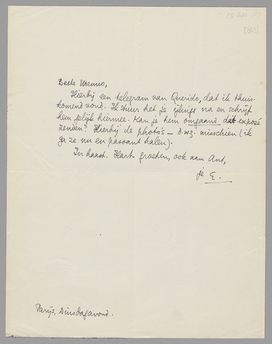 Beste Menno,
Hierbij een telegram van Querido, dat ik thuis-
komend vond. Ik stuur het je ijlings na en schrijf
hem gelijk hiermee. Kan je hem omgaand dat exposé
zenden? Hierbij de photo's — d.w.z. misschien (ik
ga ze nu en passant halen).
In haast. Hart. groeten, ook aan Ant,
je E.
Parijs, Dinsdagavond.